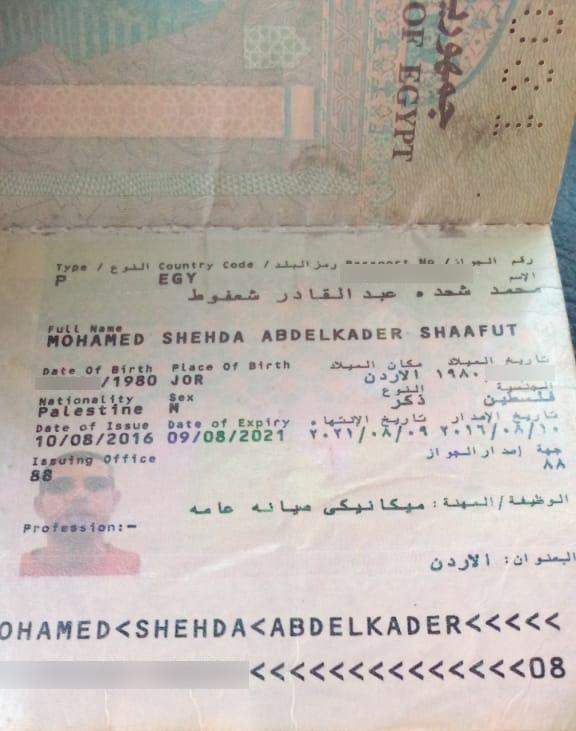 جمهورية
OF EGYPT
Type / النوع Country Code / رمز البلد Passport No / رقم الجواز
P EGY
الاسم
محمد شحده عبدالقادر شعفوط
Full Name
MOHAMED SHEHDA ABDELKADER SHAAFUT
Date Of Birth Place Of Birth مكان الميلاد تاريخ الميلاد
/1980 JOR الاردن ١٩٨٠
Nationality Sex النوع الجنسية
Palestine M ذكر فلسطين
Date of Issue Date of Expiry تاريخ الإنتهاء تاريخ الإصدار
10/08/2016 09/08/2021 ٢٠٢١/٠٨/٠٩ ٢٠١٦/٠٨/١٠
Issuing Office جهة إصدار الجواز
88 ٨٨
الوظيفة/المهنة: ميكانيكى صيانه عامه
Profession:-
العنوان: الاردن
OHAMED<SHEHDA<ABDELKADER<<<<<
<<<<<<<<<<<<<<<08